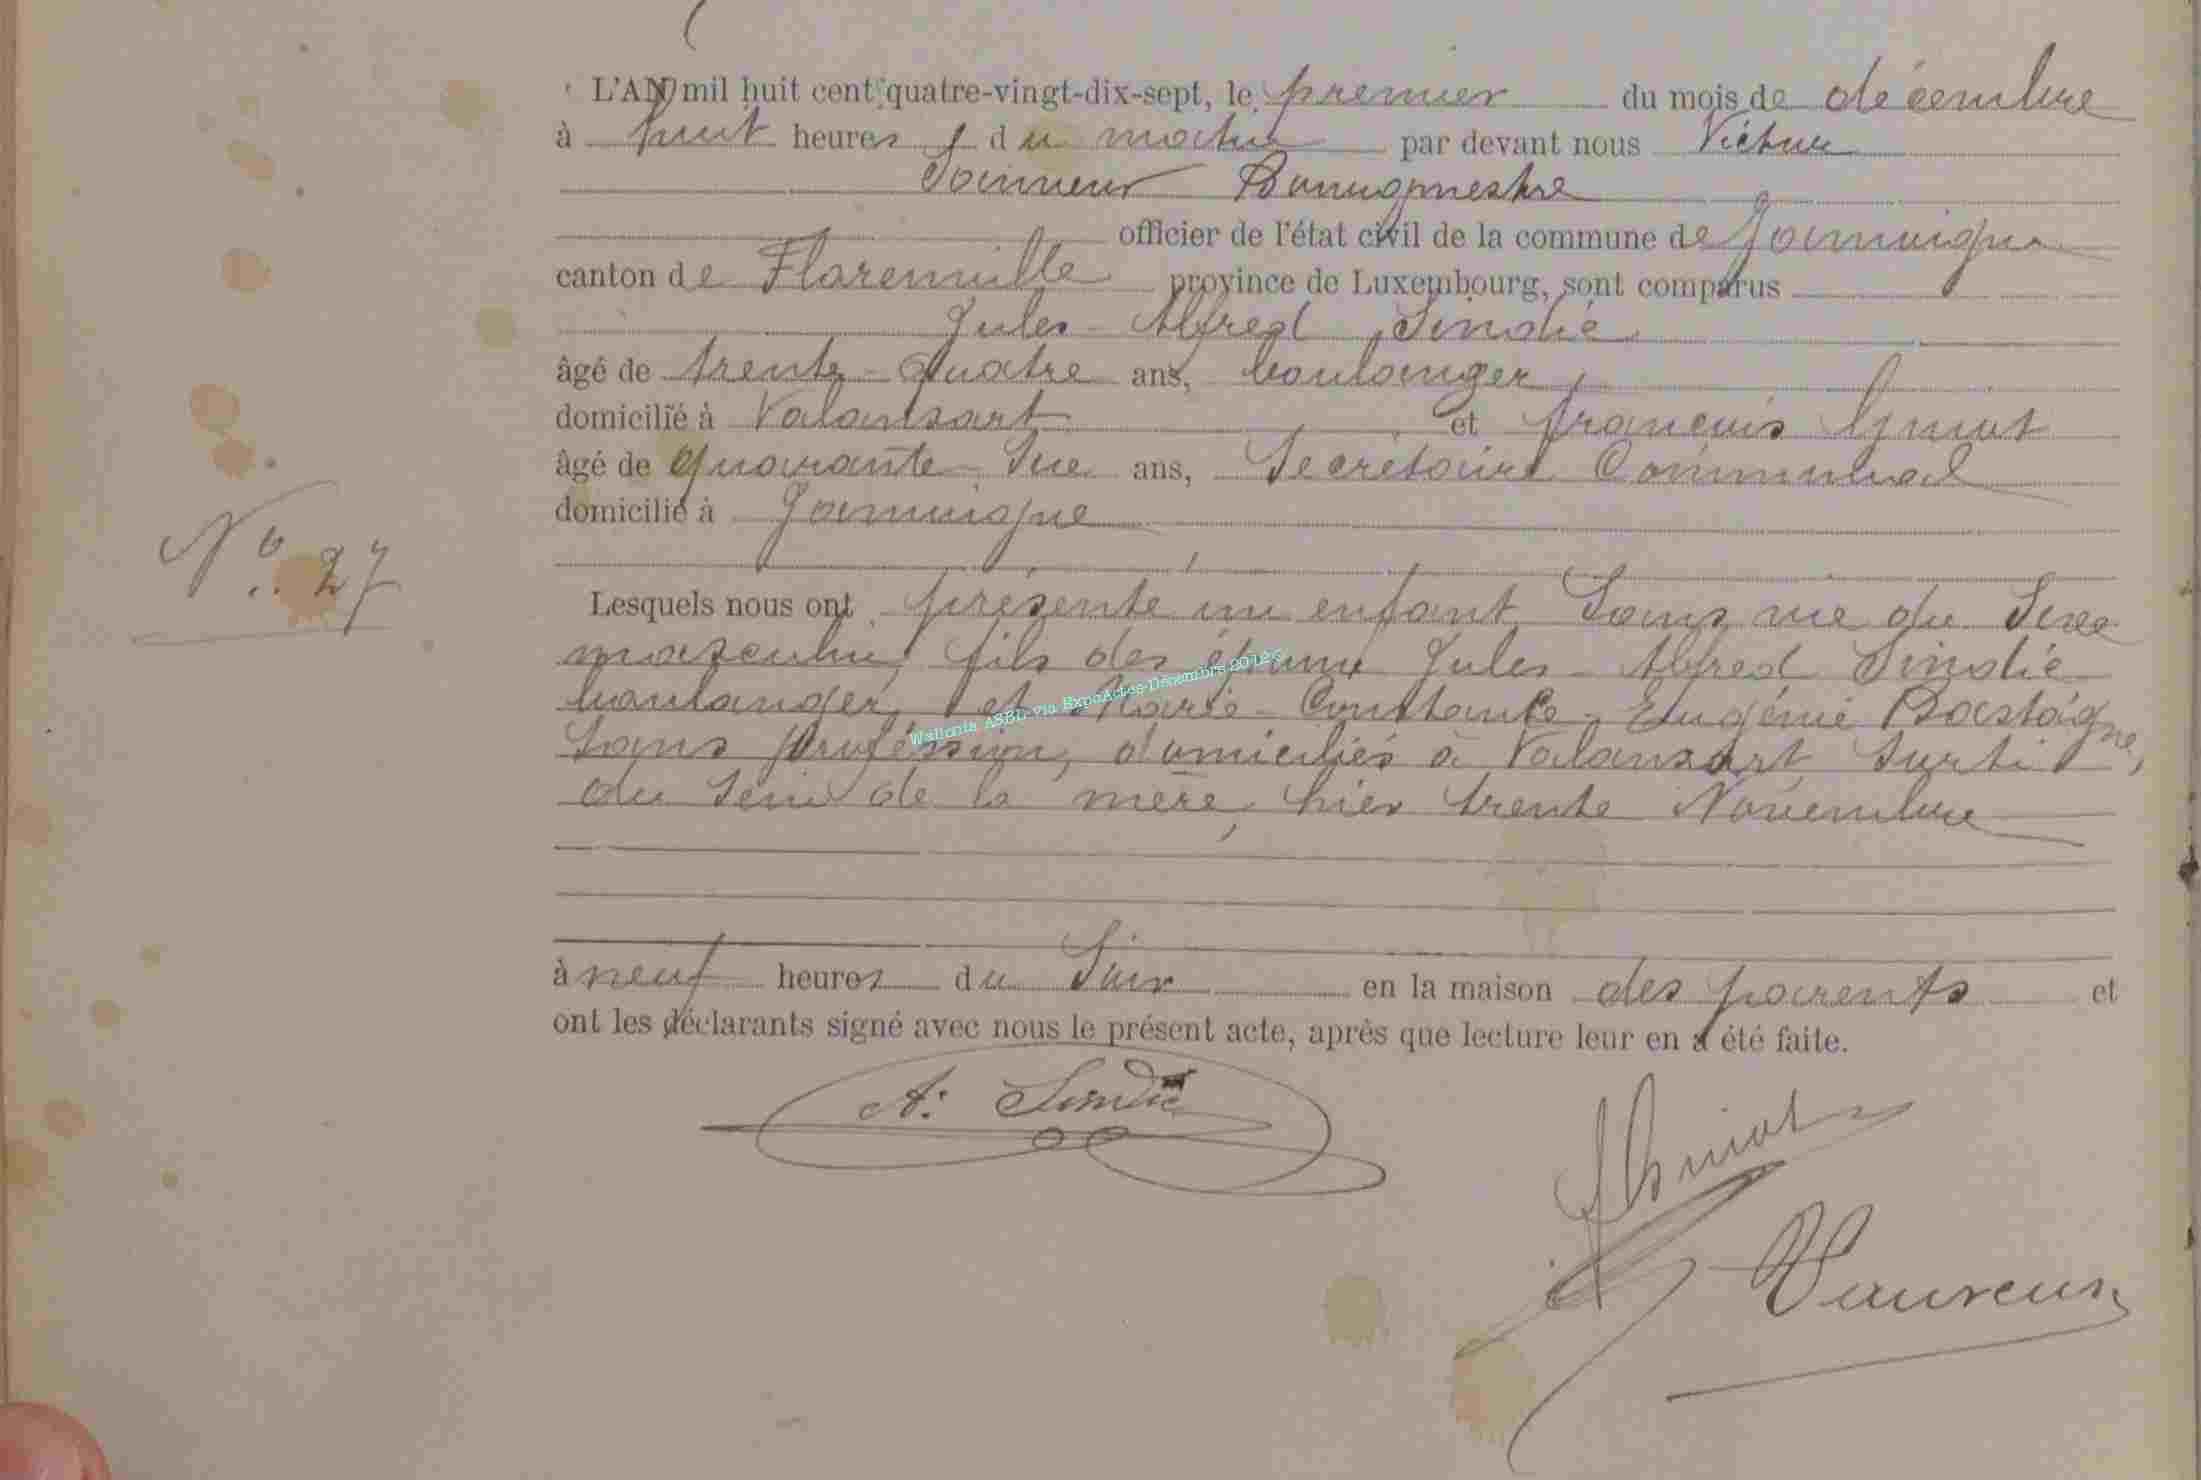 L'AN mil huit cent quatre-vingt-dix-sept, le premier du mois de décembre
à huit heures du matin par devant nous Victor
Bourgmestre
officier de l'état civil de la commune de Jamoigne
canton de Florenville province de Luxembourg, sont comparus
Jules Alfred Sindic
âgé de trente-quatre ans, boulanger,
domicilié à Valansart et françois
âgé de quarante-Six ans, Secrétaire Communal
domicilié à Jamoigne
N° 27
Lesquels nous ont présenté un enfant Sans vie du Sexe
masculin, fils des époux Jules Alfred Sindic
boulanger, et Marie-Constance-Eugénie Bastogne,
Sans profession, domiciliés à Valansart, Sorti
du Sein de la mère, hier trente Novembre
Wallonia ASBL via ExpoActes-Décembre 2012
à neuf heures du Soir en la maison des parents et
ont les déclarants signé avec nous le présent acte, après que lecture leur en a été faite.
A. Sindic